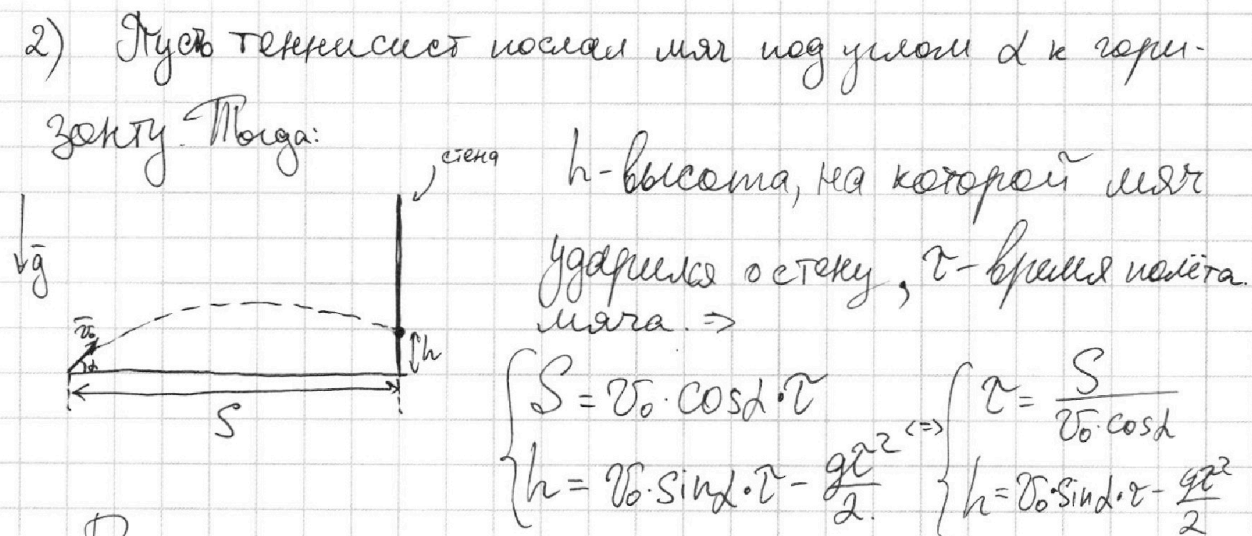 2) Пусть теннисист послал мяч под углом α к гори-
зонту. Тогда:
стена
h - высота, на которой мяч
ударился о стену, τ - время полёта
мяча. ⇒
g
v₀
α
h
S
{ S = v₀·cosα·τ <=> { τ = S / (v₀·cosα)
{ h = v₀·sinα·τ - gτ²/2. { h = v₀·sinα·τ - gτ²/2